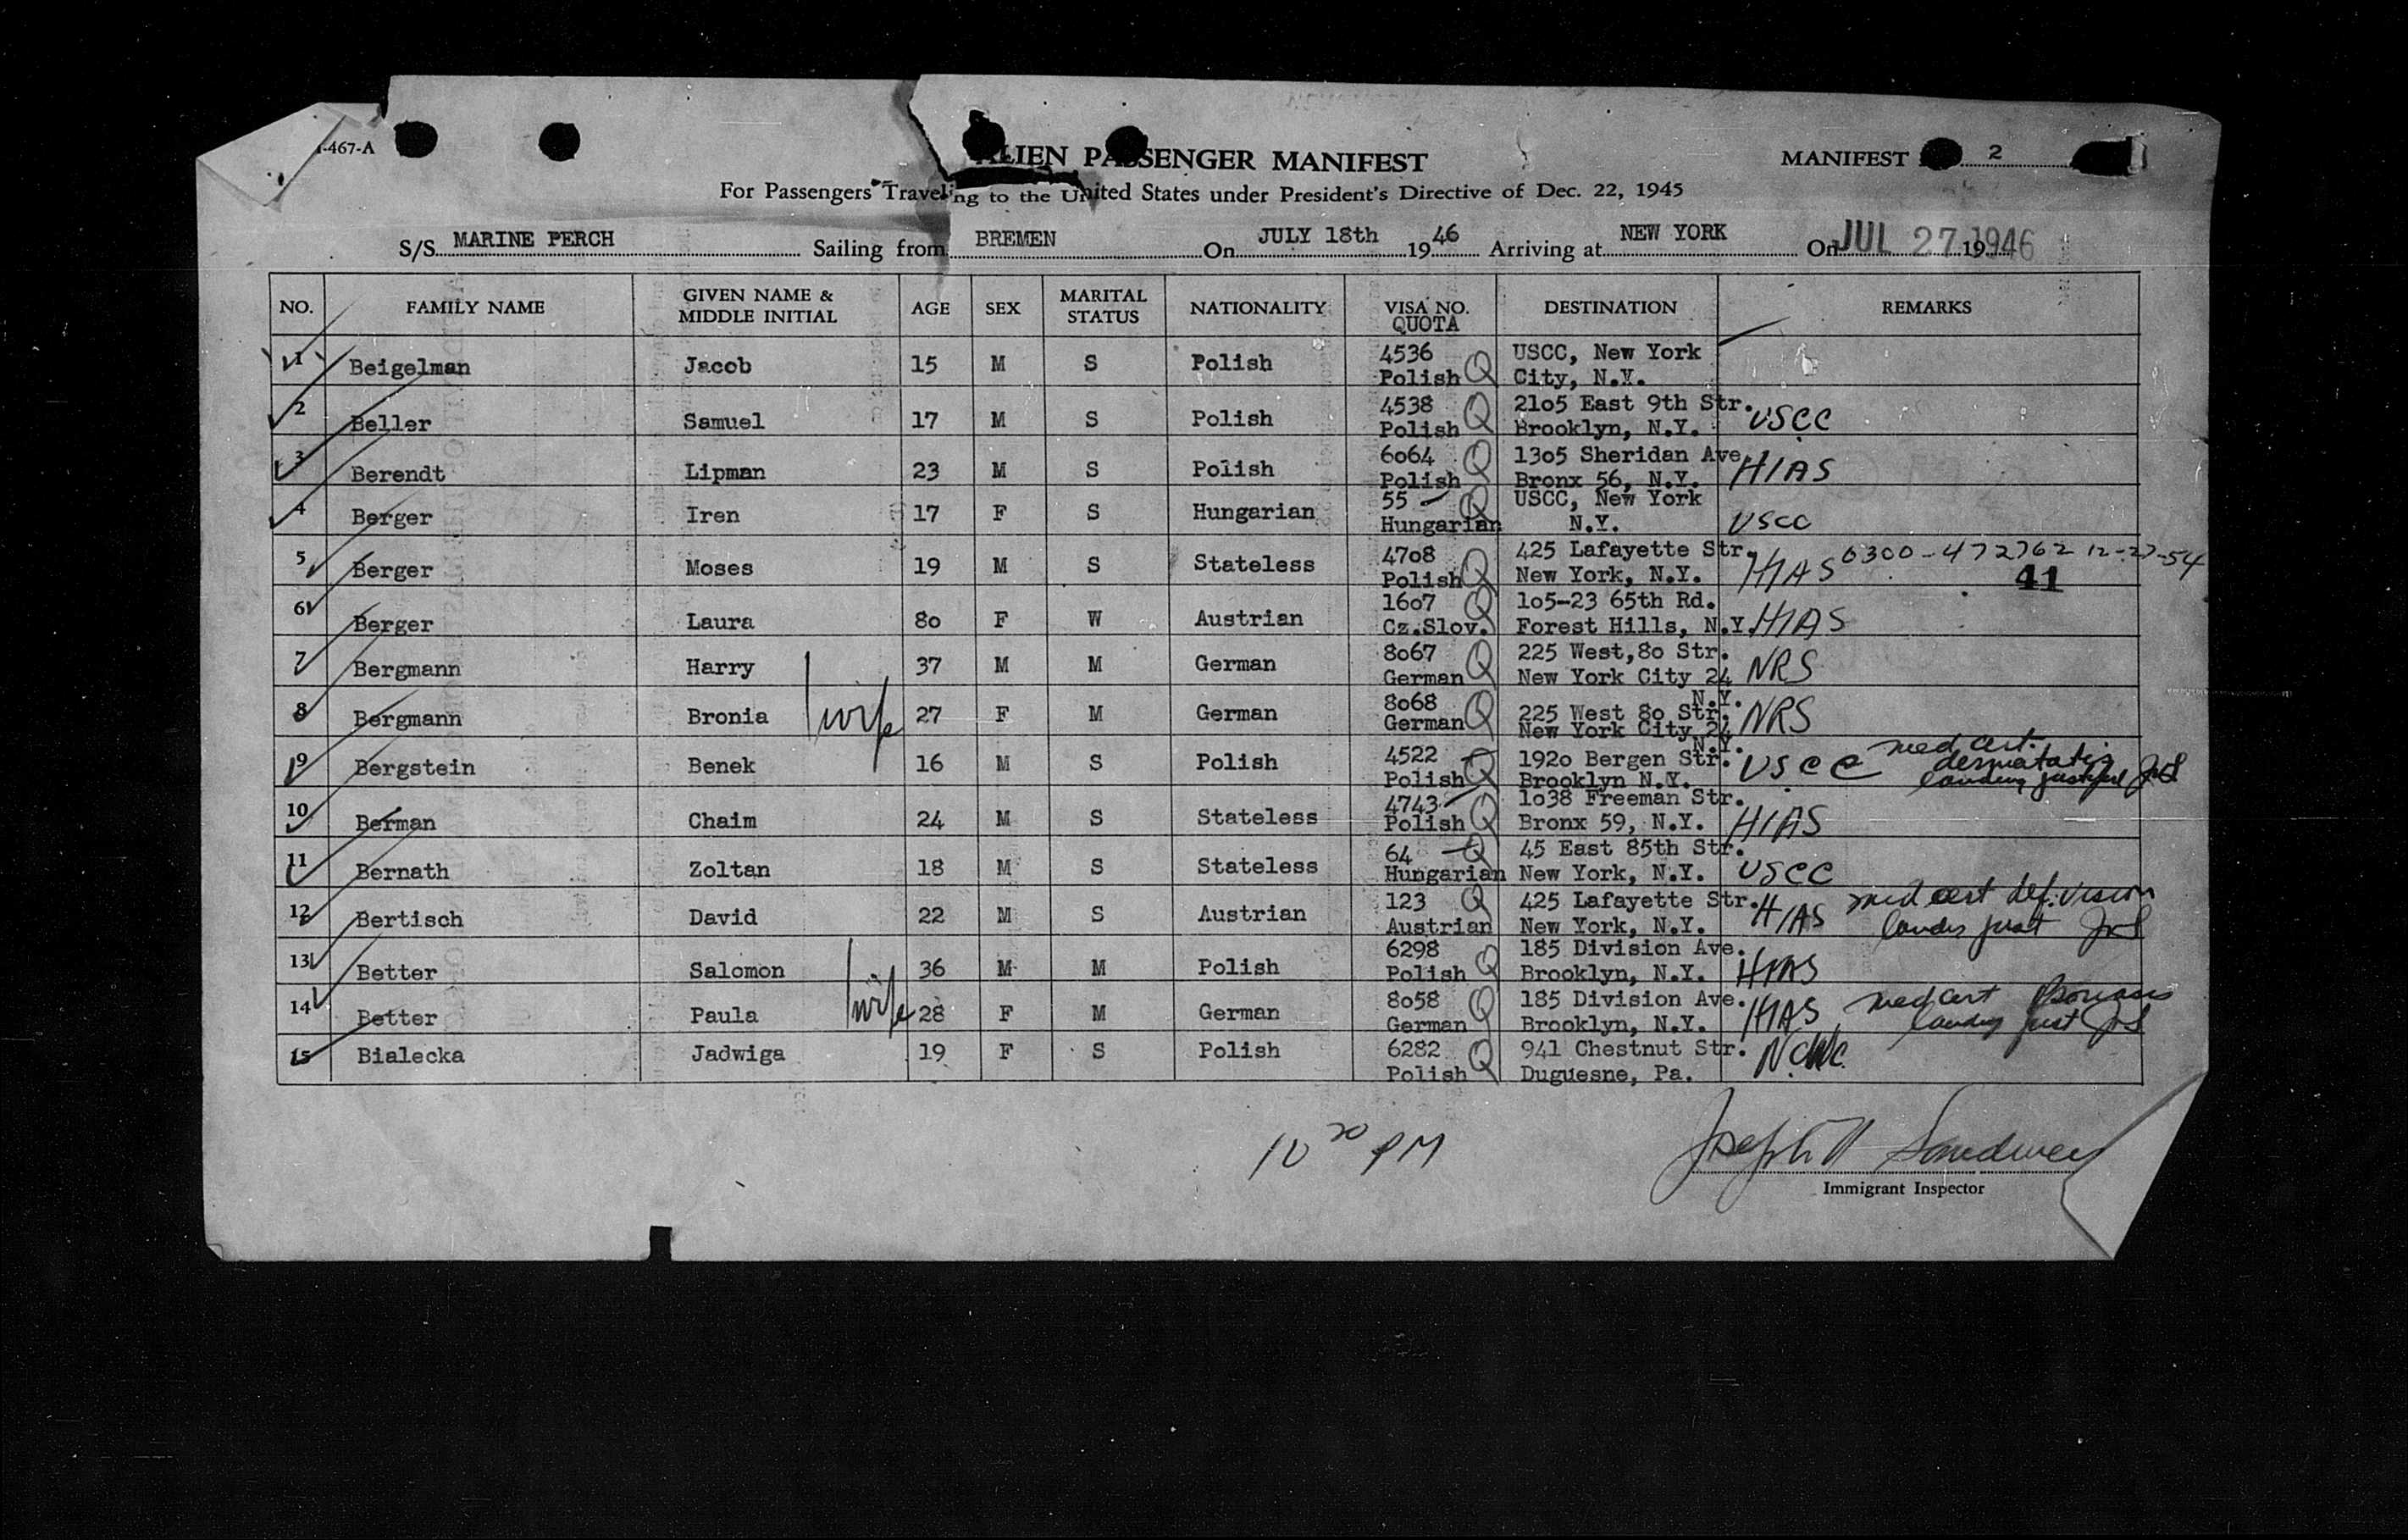 -467-A
ALIEN PASSENGER MANIFEST
MANIFEST 2
For Passengers Traveling to the United States under President's Directive of Dec. 22, 1945
S/S MARINE PERCH Sailing from BREMEN On JULY 18th 19 46 Arriving at NEW YORK On JUL 27 1946 19
NO. FAMILY NAME GIVEN NAME & MIDDLE INITIAL AGE SEX MARITAL STATUS NATIONALITY VISA NO. QUOTA DESTINATION REMARKS
1 Beigelman Jacob 15 M S Polish 4536 Q USCC, New York
Polish City, N.Y.
2 Beller Samuel 17 M S Polish 4538 Q 2105 East 9th Str. USCC
Polish Brooklyn, N.Y.
3 Berendt Lipman 23 M S Polish 6064 Q 1305 Sheridan Ave. HIAS
Polish Bronx 56, N.Y.
4 Berger Iren 17 F S Hungarian 55 Q USCC, New York USCC
Hungarian N.Y.
5 Berger Moses 19 M S Stateless 4708 Q 425 Lafayette Str. HIAS 0300-472762 12-27-54
Polish New York, N.Y. 41
6 Berger Laura 80 F W Austrian 1607 Q 105-23 65th Rd. HIAS
Cz.Slov. Forest Hills, N.Y.
7 Bergmann Harry 37 M M German 8067 Q 225 West,80 Str. NRS
German New York City 24
N.Y.
8 Bergmann Bronia wife 27 F M German 8068 Q 225 West 80 Str. NRS
German New York City 24
N.Y.
9 Bergstein Benek 16 M S Polish 4522 Q 1920 Bergen Str. USCC med cert.
Polish Brooklyn N.Y. landing
10 Berman Chaim 24 M S Stateless 4743 Q 1038 Freeman Str. HIAS
Polish Bronx 59, N.Y.
11 Bernath Zoltan 18 M S Stateless 64 Q 45 East 85th Str. USCC
Hungarian New York, N.Y.
12 Bertisch David 22 M S Austrian 123 Q 425 Lafayette Str. HIAS med cert def. vision
Austrian New York, N.Y. just
13 Better Salomon 36 M M Polish 6298 Q 185 Division Ave. HIAS
Polish Brooklyn, N.Y.
14 Better Paula wife 28 F M German 8058 Q 185 Division Ave. HIAS med cert Psoriasis
German Brooklyn, N.Y. landing just
15 Bialecka Jadwiga 19 F S Polish 6282 Q 941 Chestnut Str. NCWC
Polish Duguesne, Pa.
10 20 PM
Immigrant Inspector